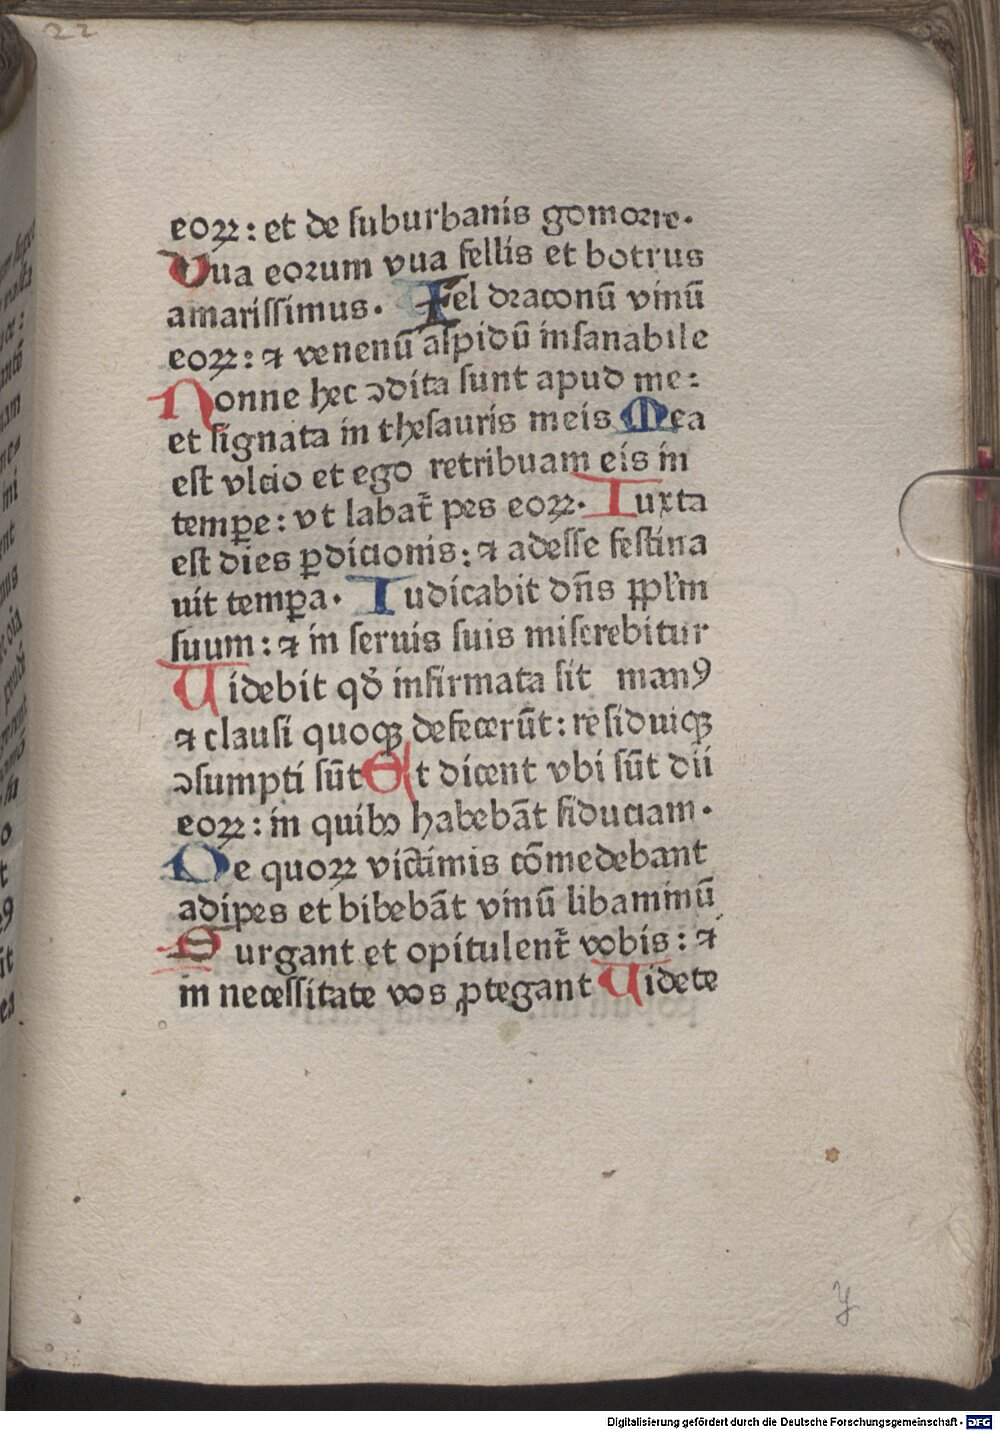 22
eoꝝ: et de ſuburbanis gomorre.
Uua eorum vua fellis et botrus
amariſſimus. Fel draconū vinū
eoꝝ: ⁊ venenū aſpidū inſanabile
Nonne hec ꝯdita ſunt apud me:
et ſignata in theſauris meis Mea
eſt vltio et ego retribuam eis in
temꝑe: vt labat̄ pes eoꝝ. Iuxta
eſt dies ꝑditionis: ⁊ adeſſe feſtina
uit temꝑa. Iudicabit dn̄s ppl̄m
ſuum: ⁊ in ſeruis ſuis miſerebitur
Videbit qd̄ infirmata ſit manꝰ
⁊ clauſi quoqꝫ defecerūt: reſiduiqꝫ
ꝯſumpti ſūt Et dicent vbi ſūt dii
eoꝝ: in quibꝰ habebāt fiduciam.
De quoꝝ victimis cōmedebant
adipes et bibebāt vinū libaminū
Surgant et opitulent̄ vobis: ⁊
in neceſſitate vos ꝓtegant Videte
y
Digitalisierung gefördert durch die Deutsche Forschungsgemeinschaft - DFG